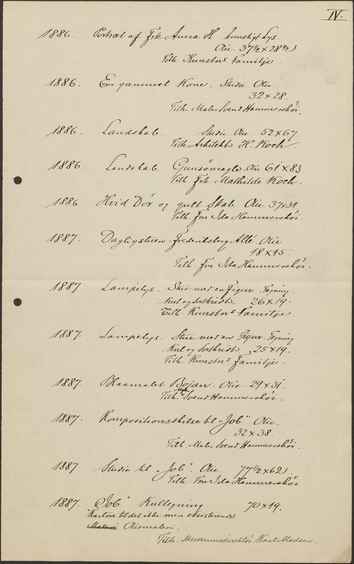 IV.
1886. Portræt af Frk. Anna H. kunstigt Lys
Olie. 37½ × 28½
Tilh. Kunstnerens Familje.
1886. En gammel Kone. Studie Olie
32 × 28
Tilh. Maler Svend Hammershøi.
1886. Landskab. Studie Olie 52 × 67
Tilh. Arkitekt H. Koch
1886 Landskab. Olie 61 × 83
Tilh. Frk. Mathilde Koch.
1886 Hvid Dør og gult Skab. Olie 37 × 39
Tilh. Fru Ida Hammershøi.
1887. Dagligstuen Frederiksberg Allé. Olie
18 × 15
Tilh. Fru Ida Hammershøi.
1887 Lampelys. Stue med en Figur Tegning
Kul og 26 × 19.
Tilh. Kunstnerens Familje
1887 Lampelys. Stue med en Figur Tegning
Kul og 25 × 19.
Tilh. Kunstnerens Familje.
1887 Olie 29 × 31.
Tilh. Svend Hammershøi.
1887. Kompositionsskitse til "Job" Olie.
32 × 38
Tilh. Maler Svend Hammershøi.
1887. Studie til "Job" Olie 77½ × 62
Tilh. Fru Ida Hammershøi
1887. "Job" Kultegning 70 × 49.
Karton til det ikke mere existerende
Oliemaleri.
Tilh. Museumsdirektør Karl Madsen.